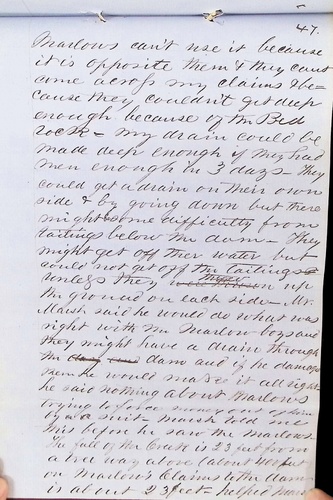 47.
Marlows can't use it because
it is opposite them & they cant
come across my claims & be-
cause they couldn't get deep
enough because of the Bed
rock - my drain could be
made deep enough if they had
men enough in 3 days - They
could get a drain on their own
side & by going down but there
might come difficulty from
tailings below the dam - They
might get off their water but
could not get off the tailings
unless they up
the ground on each side - Mr.
Marsh said he would do what was
right with the Marlow boys and
they might have a drain through
the dam and if he damaged
them he would make it all right
he said nothing about Marlow's
trying to force money out of him
by a suit Marsh told me
this before he saw the Marlows.
The fall of the Creek is 23 feet from
a tree way above (about 400 feet
on Marlow's Claims to the dam
is about 23 feet